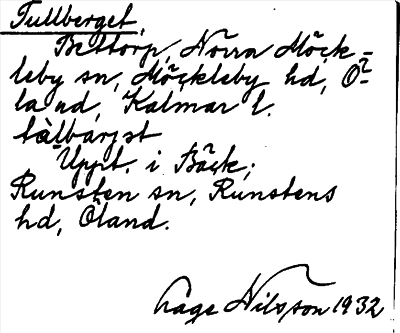 Tullberget,
Bettorp, Norra Möck-
leby sn, Möckleby hd, Ö-
land, Kalmar l.
tàlbärjət
Uppt. i Bäck,
Runsten sn, Runstens
hd, Öland.
Åage Nilsson 1932